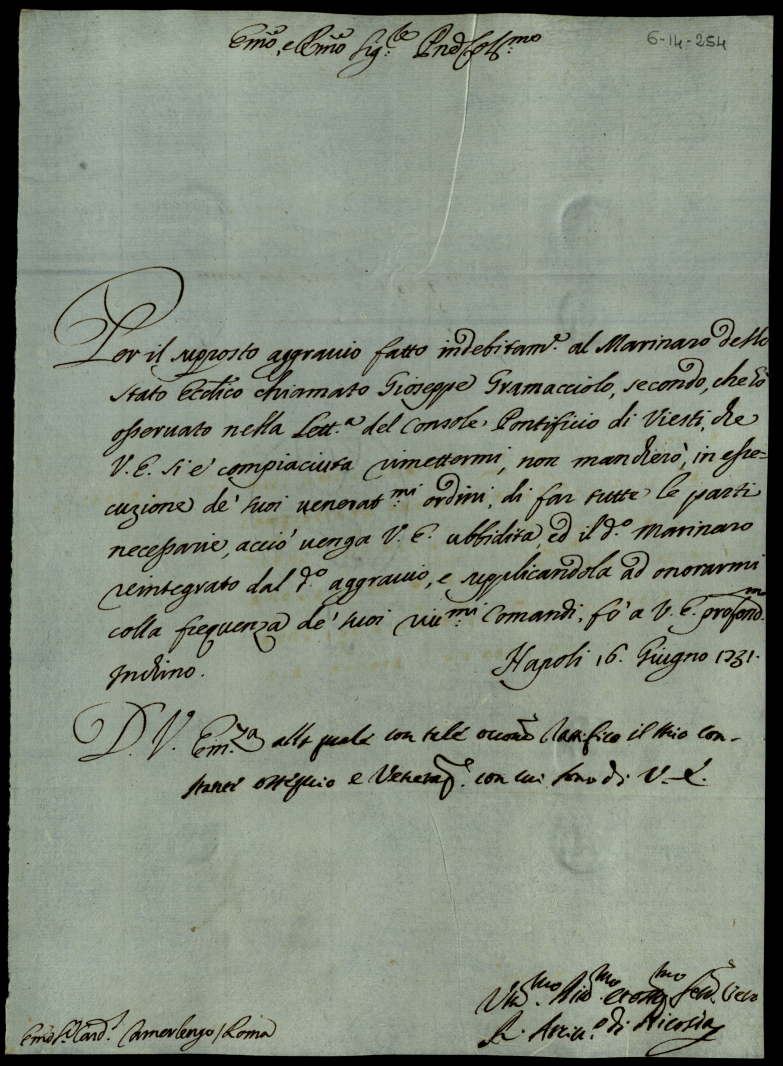 Emo, e Rmo Sig.re Pne Coll.mo
6-14-254
Per il supposto aggravio fatto indebitam.e al Marinaro dello
Stato Ecclico chiamato Gioseppe Gramacciolo, secondo, che hò
osservato nella Lett.a del Console Pontificio di Viesti, che
V.E. si e' compiaciuta rimettermi, non mancherò, in esse=
cuzione de' suoi venerat.mi ordini, di far tutte le parti
necessarie, acciò venga V. E. ubbidita, ed il d.o Marinaro
reintegrato dal d.o aggravio, e supplicandola ad onorarmi
colla frequenza de' suoi riv.mi Comandi, fò a V. E. profond.mo
Inchino. Napoli 16. Giugno 1731.
D. V. Em.za alla quale con tale occone Ratifico il mio con-
stante ossequio e Veneraz.e con cui sono di V. E.
Um.mo Div.mo et Obb.mo Serv. Vero
Arciv.o di Nicosia
Emo S. Card. Camerlengo / Roma